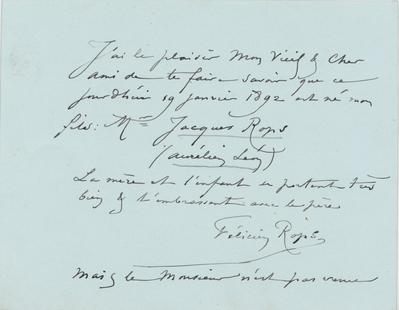 J'ai le plaisir Mon Vieil & Cher
ami de te faire savoir que ce
jourdhui 19 janvier 1892 est né mon
fils: Mr Jacques Rops
(aurélien Léon)
La mère et l'enfant se portent très
bien & t'embrassent avec le père
Félicien Rops
Mais le Monsieur n'est pas venu